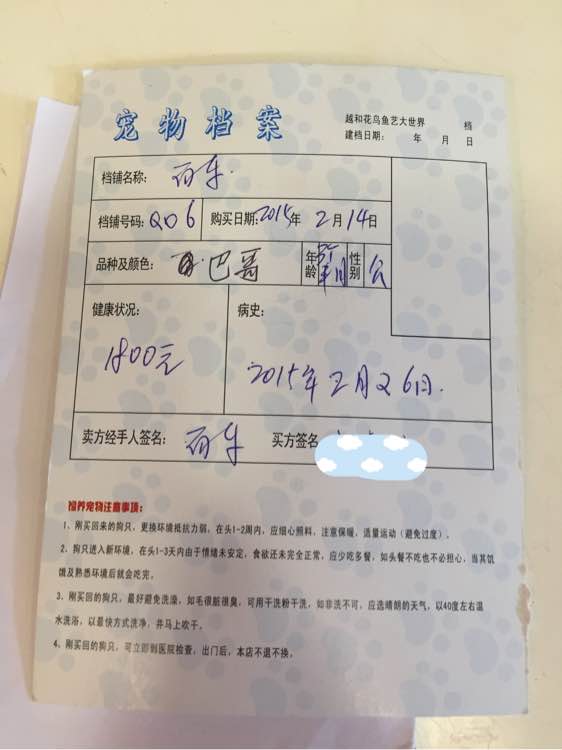 宠物档案
越和花鸟鱼艺大世界 档
建档日期: 年 月 日
档铺名称:
档铺号码: Q06 购买日期: 2015年 2月 14日
品种及颜色: 巴哥 年龄 性别 公
健康状况: 病史:
1800元 2015年2月26日.
卖方经手人签名: 买方签名
饲养宠物注意事项:
1、刚买回来的狗只，更换环境抵抗力弱，在头1-2周内，应细心照料，注意保暖，适量运动（避免过度）。
2、狗只进入新环境，在头1-3天内由于情绪未安定，食欲还未完全正常，应少吃多餐，如头餐不吃也不必担心，当其饥
饿及熟悉环境后就会吃完。
3、刚买回的狗只，最好避免洗澡，如毛很脏很臭，可用干洗粉干洗，如非洗不可，应选晴朗的天气，以40度左右温
水洗浴，以最快方式洗净，并马上吹干。
4、刚买回的狗只，可立即到医院检查，出门后，本店不退不换。